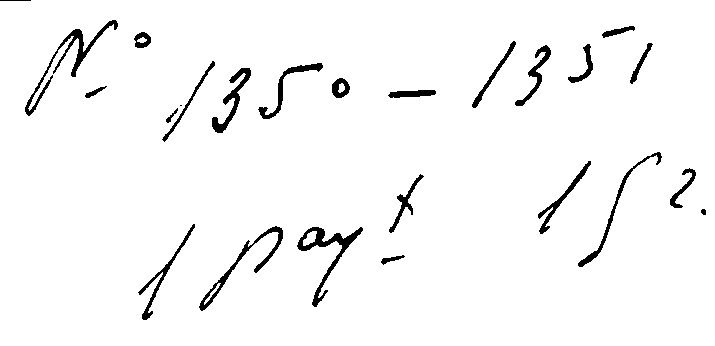 Nº 1350 – 1351
1 payt 1 f 2.